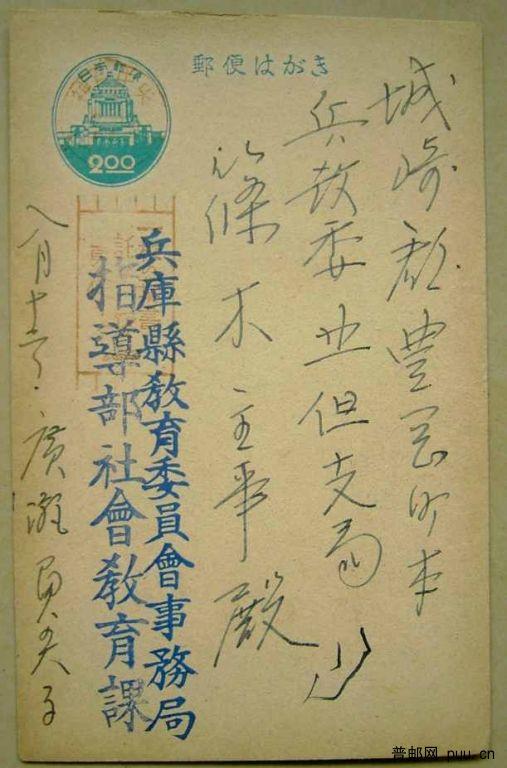 郵便はがき
2.00
城崎郡豊岡町本
兵教委北但支局
篠木主事殿
兵庫縣教育委員會事務局
指導部社會教育課
八月十
廣瀬
普邮网 puu.cn